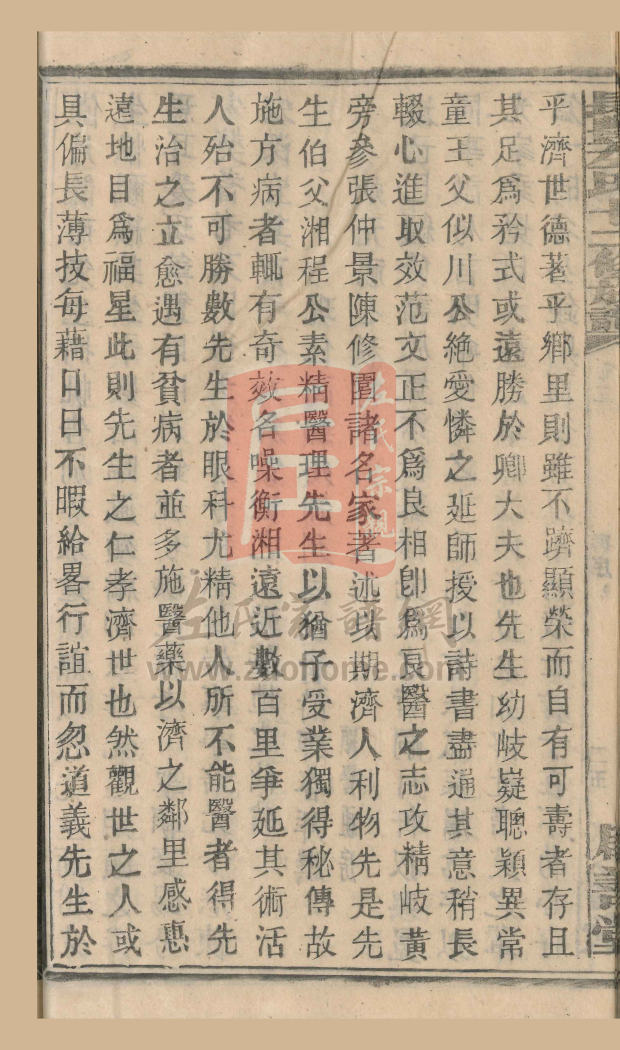 乎濟世德著乎鄉里則雖不躋顯榮而自有可壽者存且
其足爲矜式或遠勝於卿大夫也先生幼岐嶷聰穎異常
童王父似川公絶愛憐之延師授以詩書盡通其意稍長
輟心進取效范文正不爲良相卽爲良醫之志攻精岐黄
旁參張仲景陳修園諸名家著述以期濟人利物先是先
生伯父湘程公素精醫理先生以猶子受業獨得秘傳故
施方病者輒有奇效名噪衡湘遠近數百里爭延其術活
人殆不可勝數先生於眼科尤精他人所不能醫者得先
生治之立愈遇有貧病者並多施醫藥以濟之鄰里感惠
遠地目爲福星此則先生之仁孝濟世也然觀世之人或
具偏長薄技每藉口日不暇給畧行誼而忽道義先生於
左氏宗親
左氏家譜網
www.zuohome.com